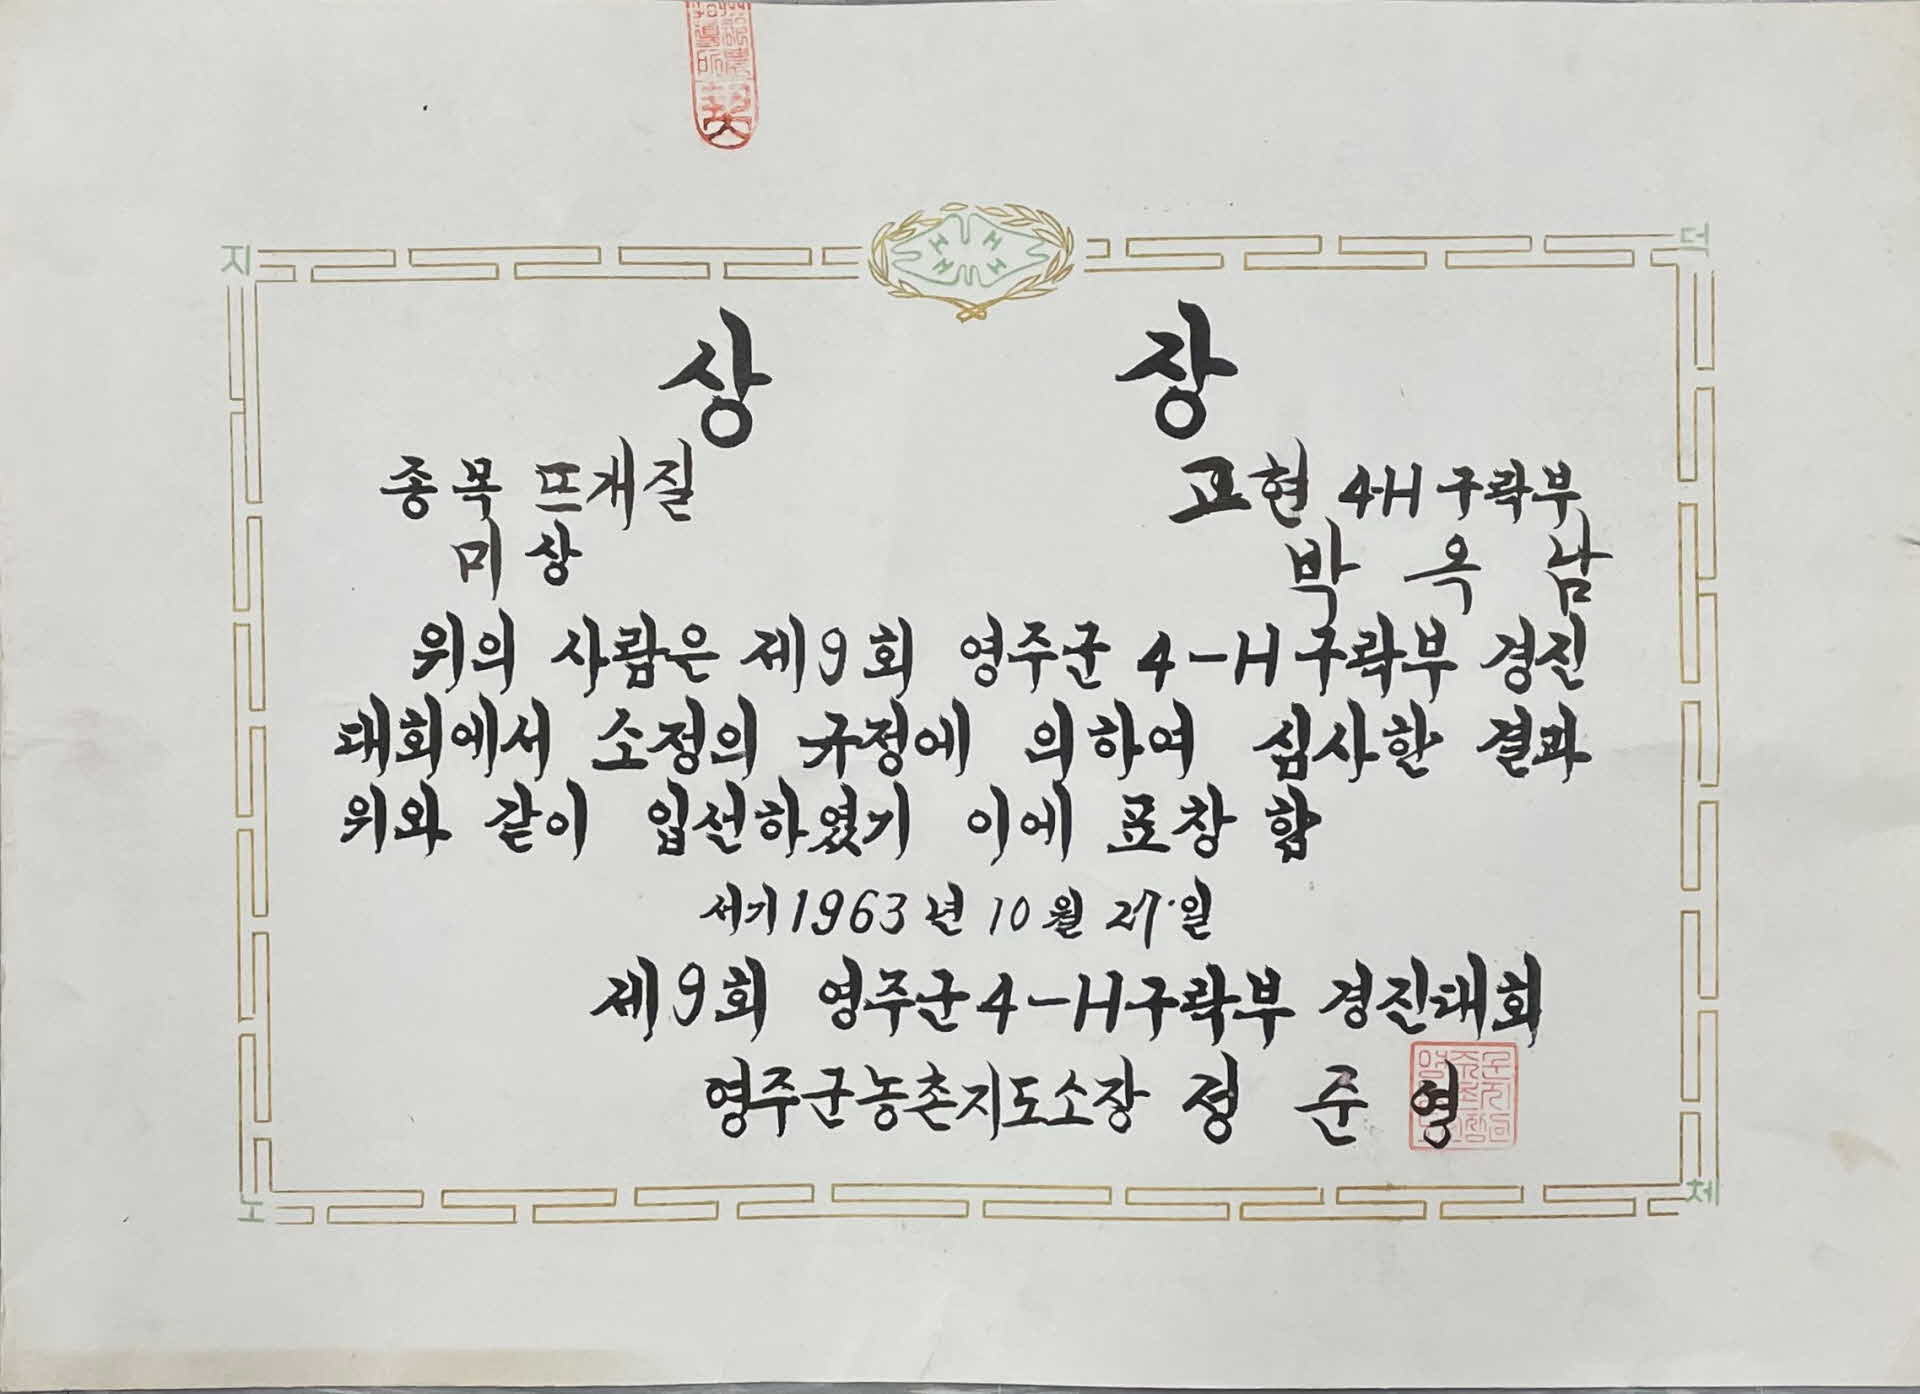 지 덕
상 장
종목 뜨개질 고현 4-H 구락부
미상 박옥남
위의 사람은 제9회 영주군 4-H구락부 경진
대회에서 소정의 규정에 의하여 심사한 결과
위와 같이 입선하였기 이에 표창함
서기 1963년 10월 27일
제9회 영주군 4-H구락부 경진대회
영주군농촌지도소장 정준영
노 체